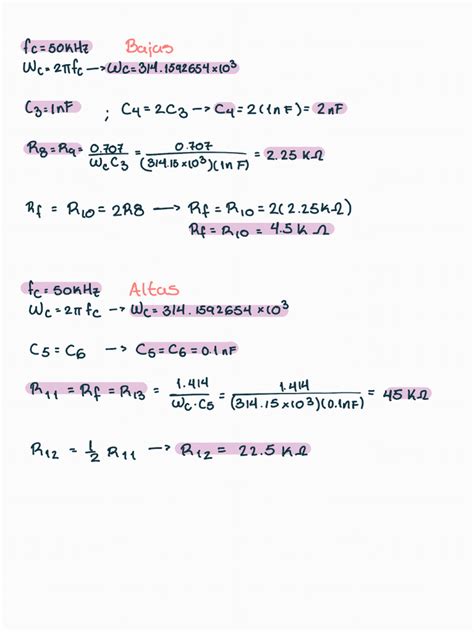 fc=50KHz Bajas
Wc=2πfc → Wc=314.1592654×10³
C3=1nF ; C4=2C3 → C4=2(1nF)=2nF
R8=R9= 0.707/WcC3 = 0.707/(314.15×10³)(1nF) = 2.25 KΩ
Rf = R10 = 2R8 → Rf=R10=2(2.25KΩ)
Rf=R10 = 4.5 KΩ
fc=50KHz Altas
Wc=2πfc → Wc=314.1592654×10³
C5=C6 → C5=C6=0.1nF
R11 = Rf = R13 = 1.414/Wc·C5 = 1.414/(314.15×10³)(0.1nF) = 45 KΩ
R12 = 1/2 R11 → R12 = 22.5 KΩ